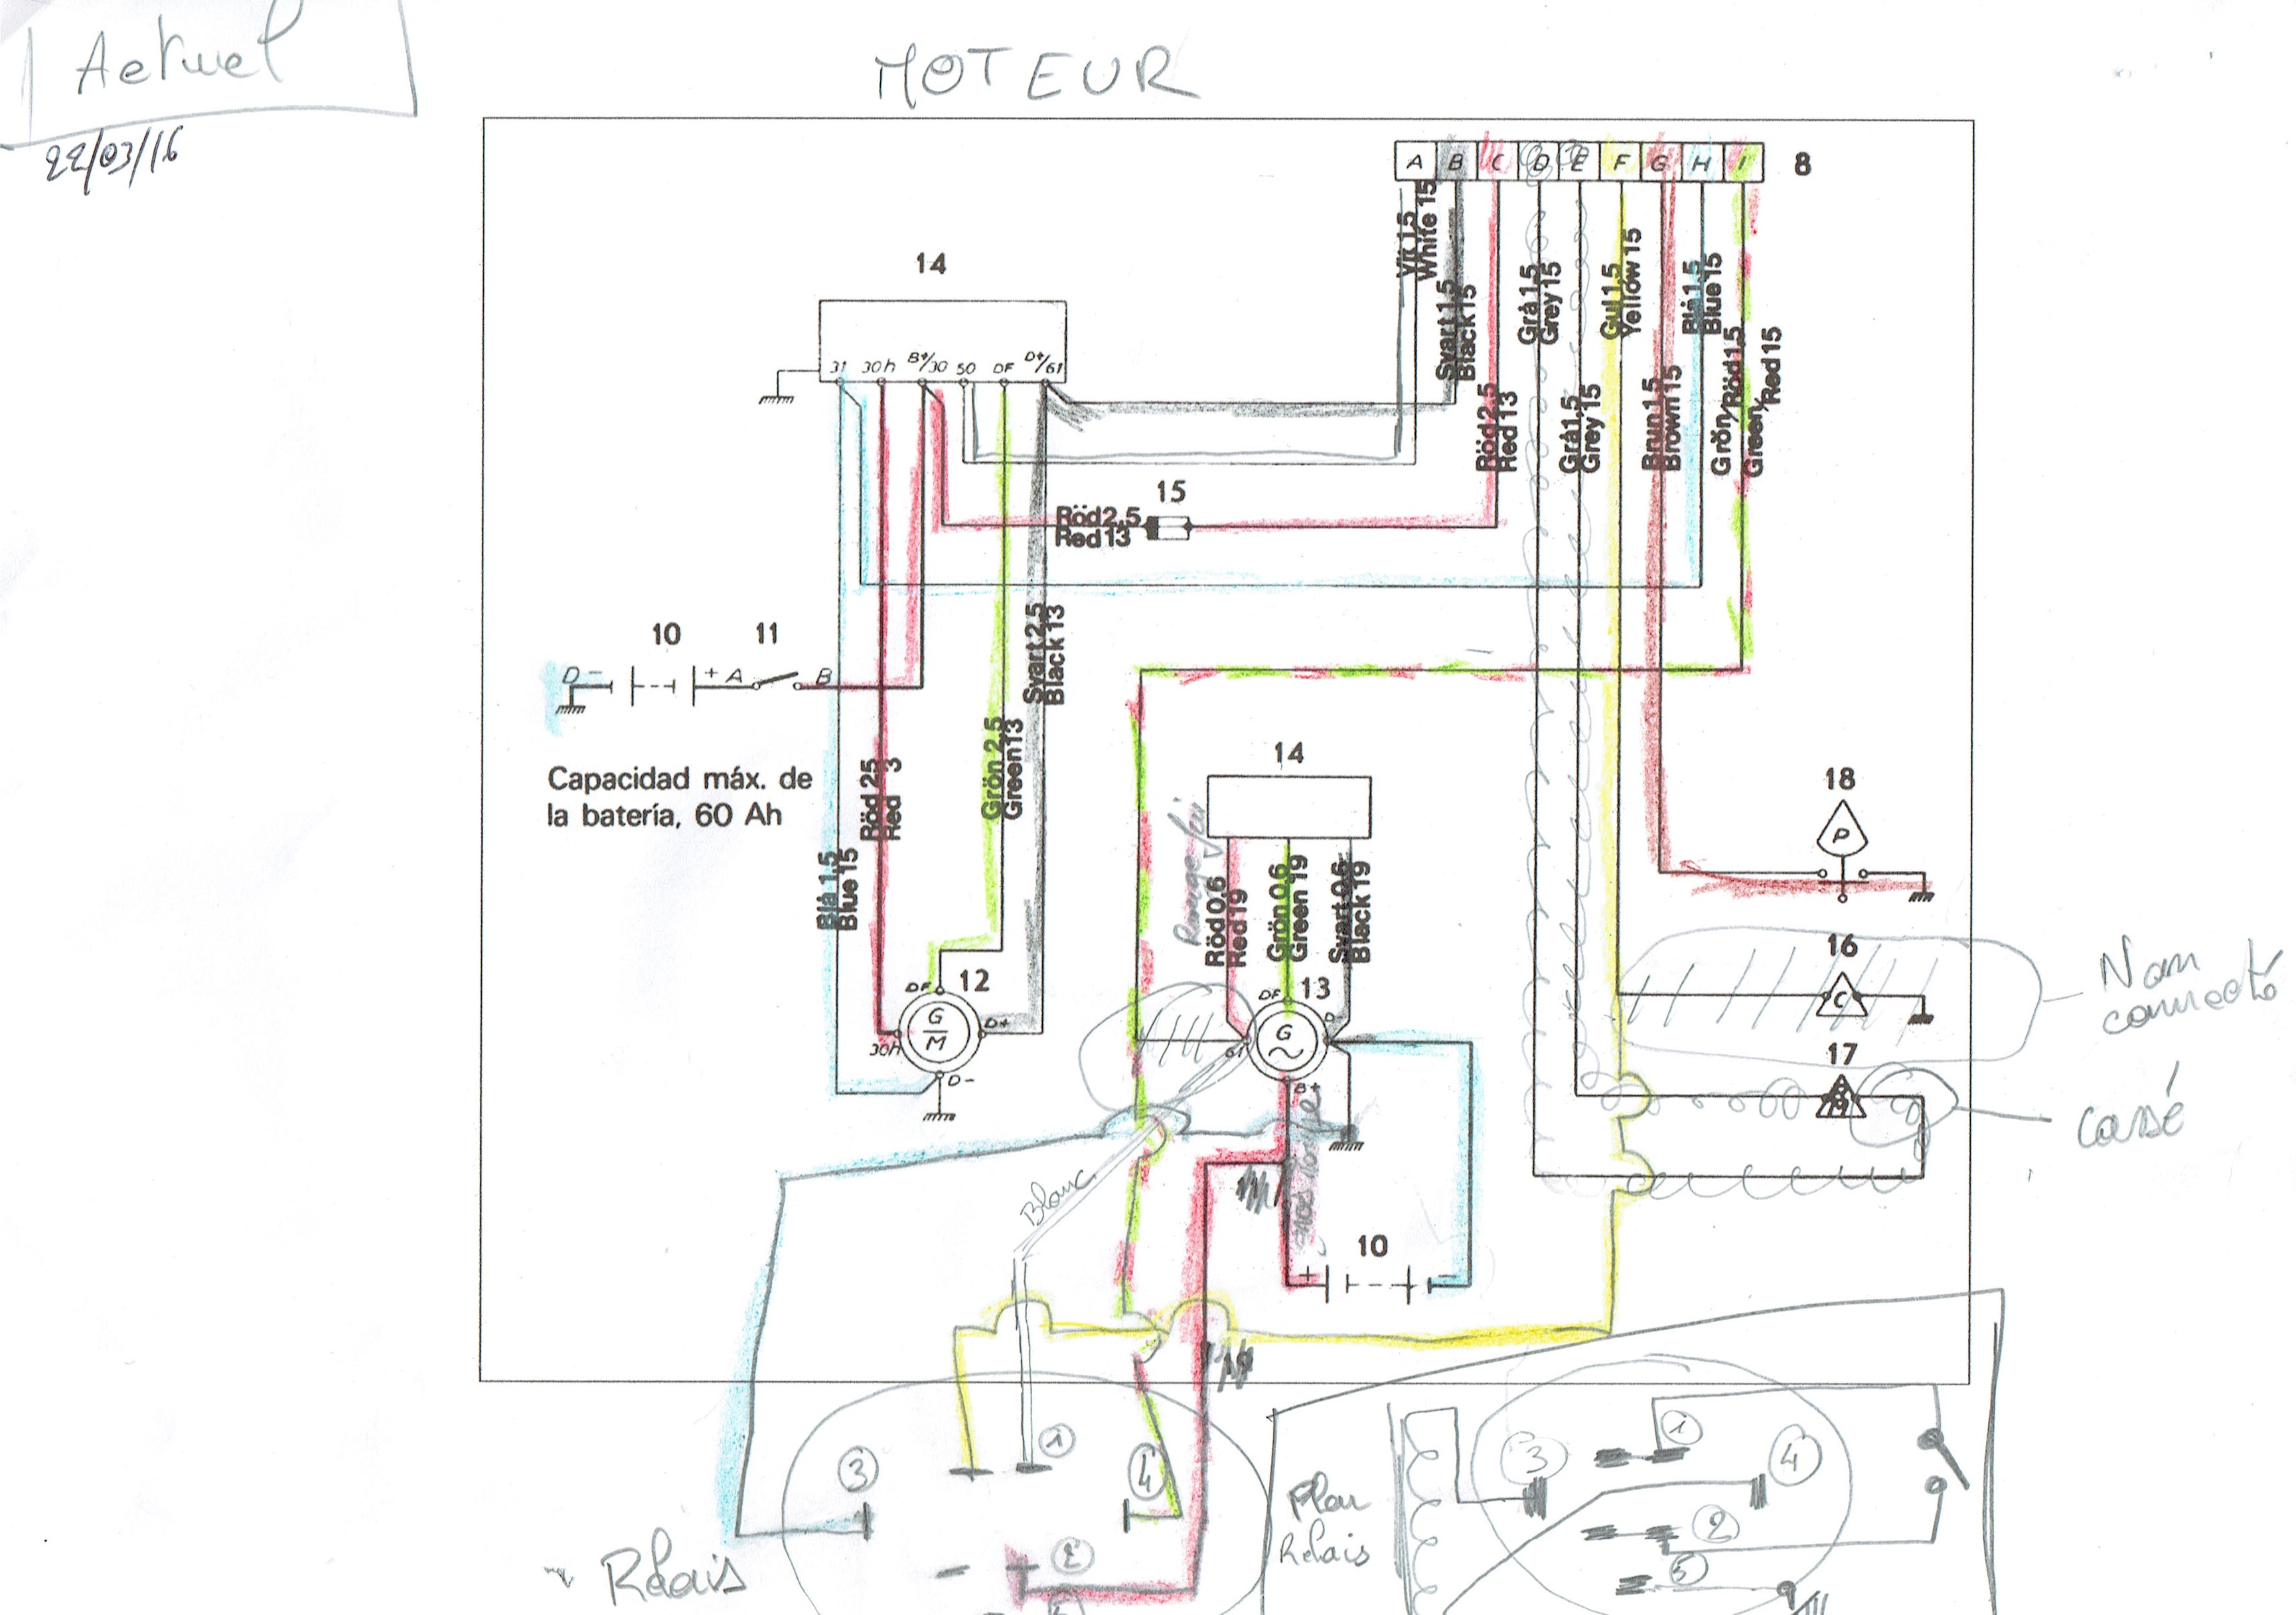 Actuel
22/03/16
MOTEUR
A B C D E F G H I 8
Vit 1.5
White 15
Svart 1.5
Black 15
Röd 2.5
Red 13
Grå 1.5
Grey 15
Grå 1.5
Grey 15
Gul 1.5
Yellow 15
Brun 1.5
Brown 15
Blå 1.5
Blue 15
Grön/Röd 1.5
Green/Red 15
14
31 30h B+/30 50 DF D+/61
15
Röd 2.5
Red 13
10 11
D - + A B
Svart 2.5
Black 13
Capacidad máx. de
la batería, 60 Ah
Röd 25
Red 3
Grön 2.5
Green 13
Blå 1.5
Blue 15
DF 12
G
M
30h D+
D-
14
Rouge
Röd 0.6
Red 19
Grön 0.6
Green 19
Svart 0.6
Black 19
DF 13
G
61 D-
B+
18
P
16
C
Non
connecté
17
cassé
Blanc
10
+ -
19
3 1 4
2
Relais
Plan
Relais
3 1 4
2
5